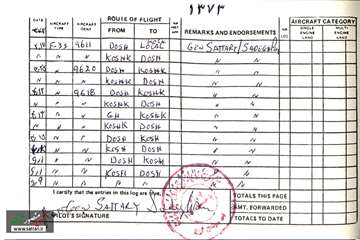 ۱۳۷۳
AIRCRAFT TYPE AIRCRAFT IDENT ROUTE OF FLIGHT FROM TO REMARKS AND ENDORSEMENTS NR LDG AIRCRAFT CATEGORY SINGLE ENGINE LAND MULTI-ENGINE LAND
F-33 9611 DOSH LOCAL GEN SATTARI/SADEGHPUR
" " KOSHK DOSH " "
" 9620 DOSH KOSHK " "
" " KOSHK DOSH " "
" 9618 DOSH KOSHK " "
" " KOSHK DOSH " "
" " GH KOSHK " "
" " KOSHK DOSH " "
" " DOSH KOSHK " "
" " KOSH DOSH " "
" " DOSH KOSHK " "
" " KOSH DOSH " "
I certify that the entries in this log are true,
TOTALS THIS PAGE
GEN SATTARY
AMT. FORWARDED
PILOT'S SIGNATURE
TOTALS TO DATE
www.sattari.ir